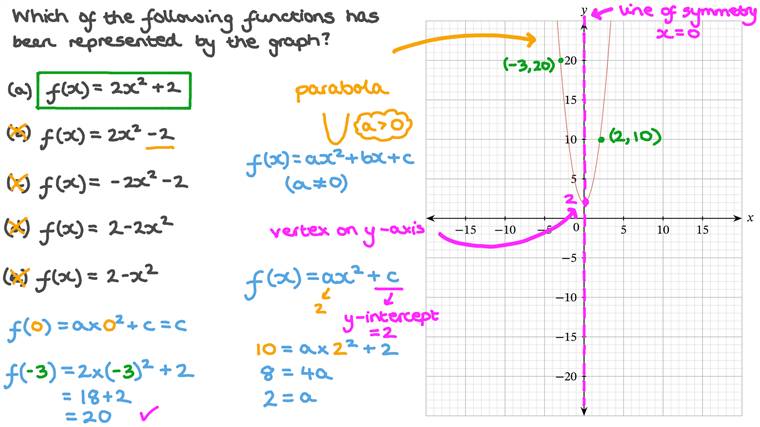 Which of the following functions has
been represented by the graph?
(a) f(x) = 2x² + 2
f(x) = 2x² - 2
f(x) = -2x² - 2
f(x) = 2 - 2x²
f(x) = 2 - x²
f(0) = a×0² + c = c
f(-3) = 2×(-3)² + 2
= 18 + 2
= 20 ✓
parabola
a>0
f(x) = ax² + bx + c
(a ≠ 0)
vertex on y-axis
f(x) = ax² + c
2
y-intercept
= 2
10 = a×2² + 2
8 = 4a
2 = a
line of symmetry
x = 0
y
x
(-3, 20)
(2, 10)
2
20
15
10
5
0
−5
−10
−15
−20
−15
−10
−5
5
10
15